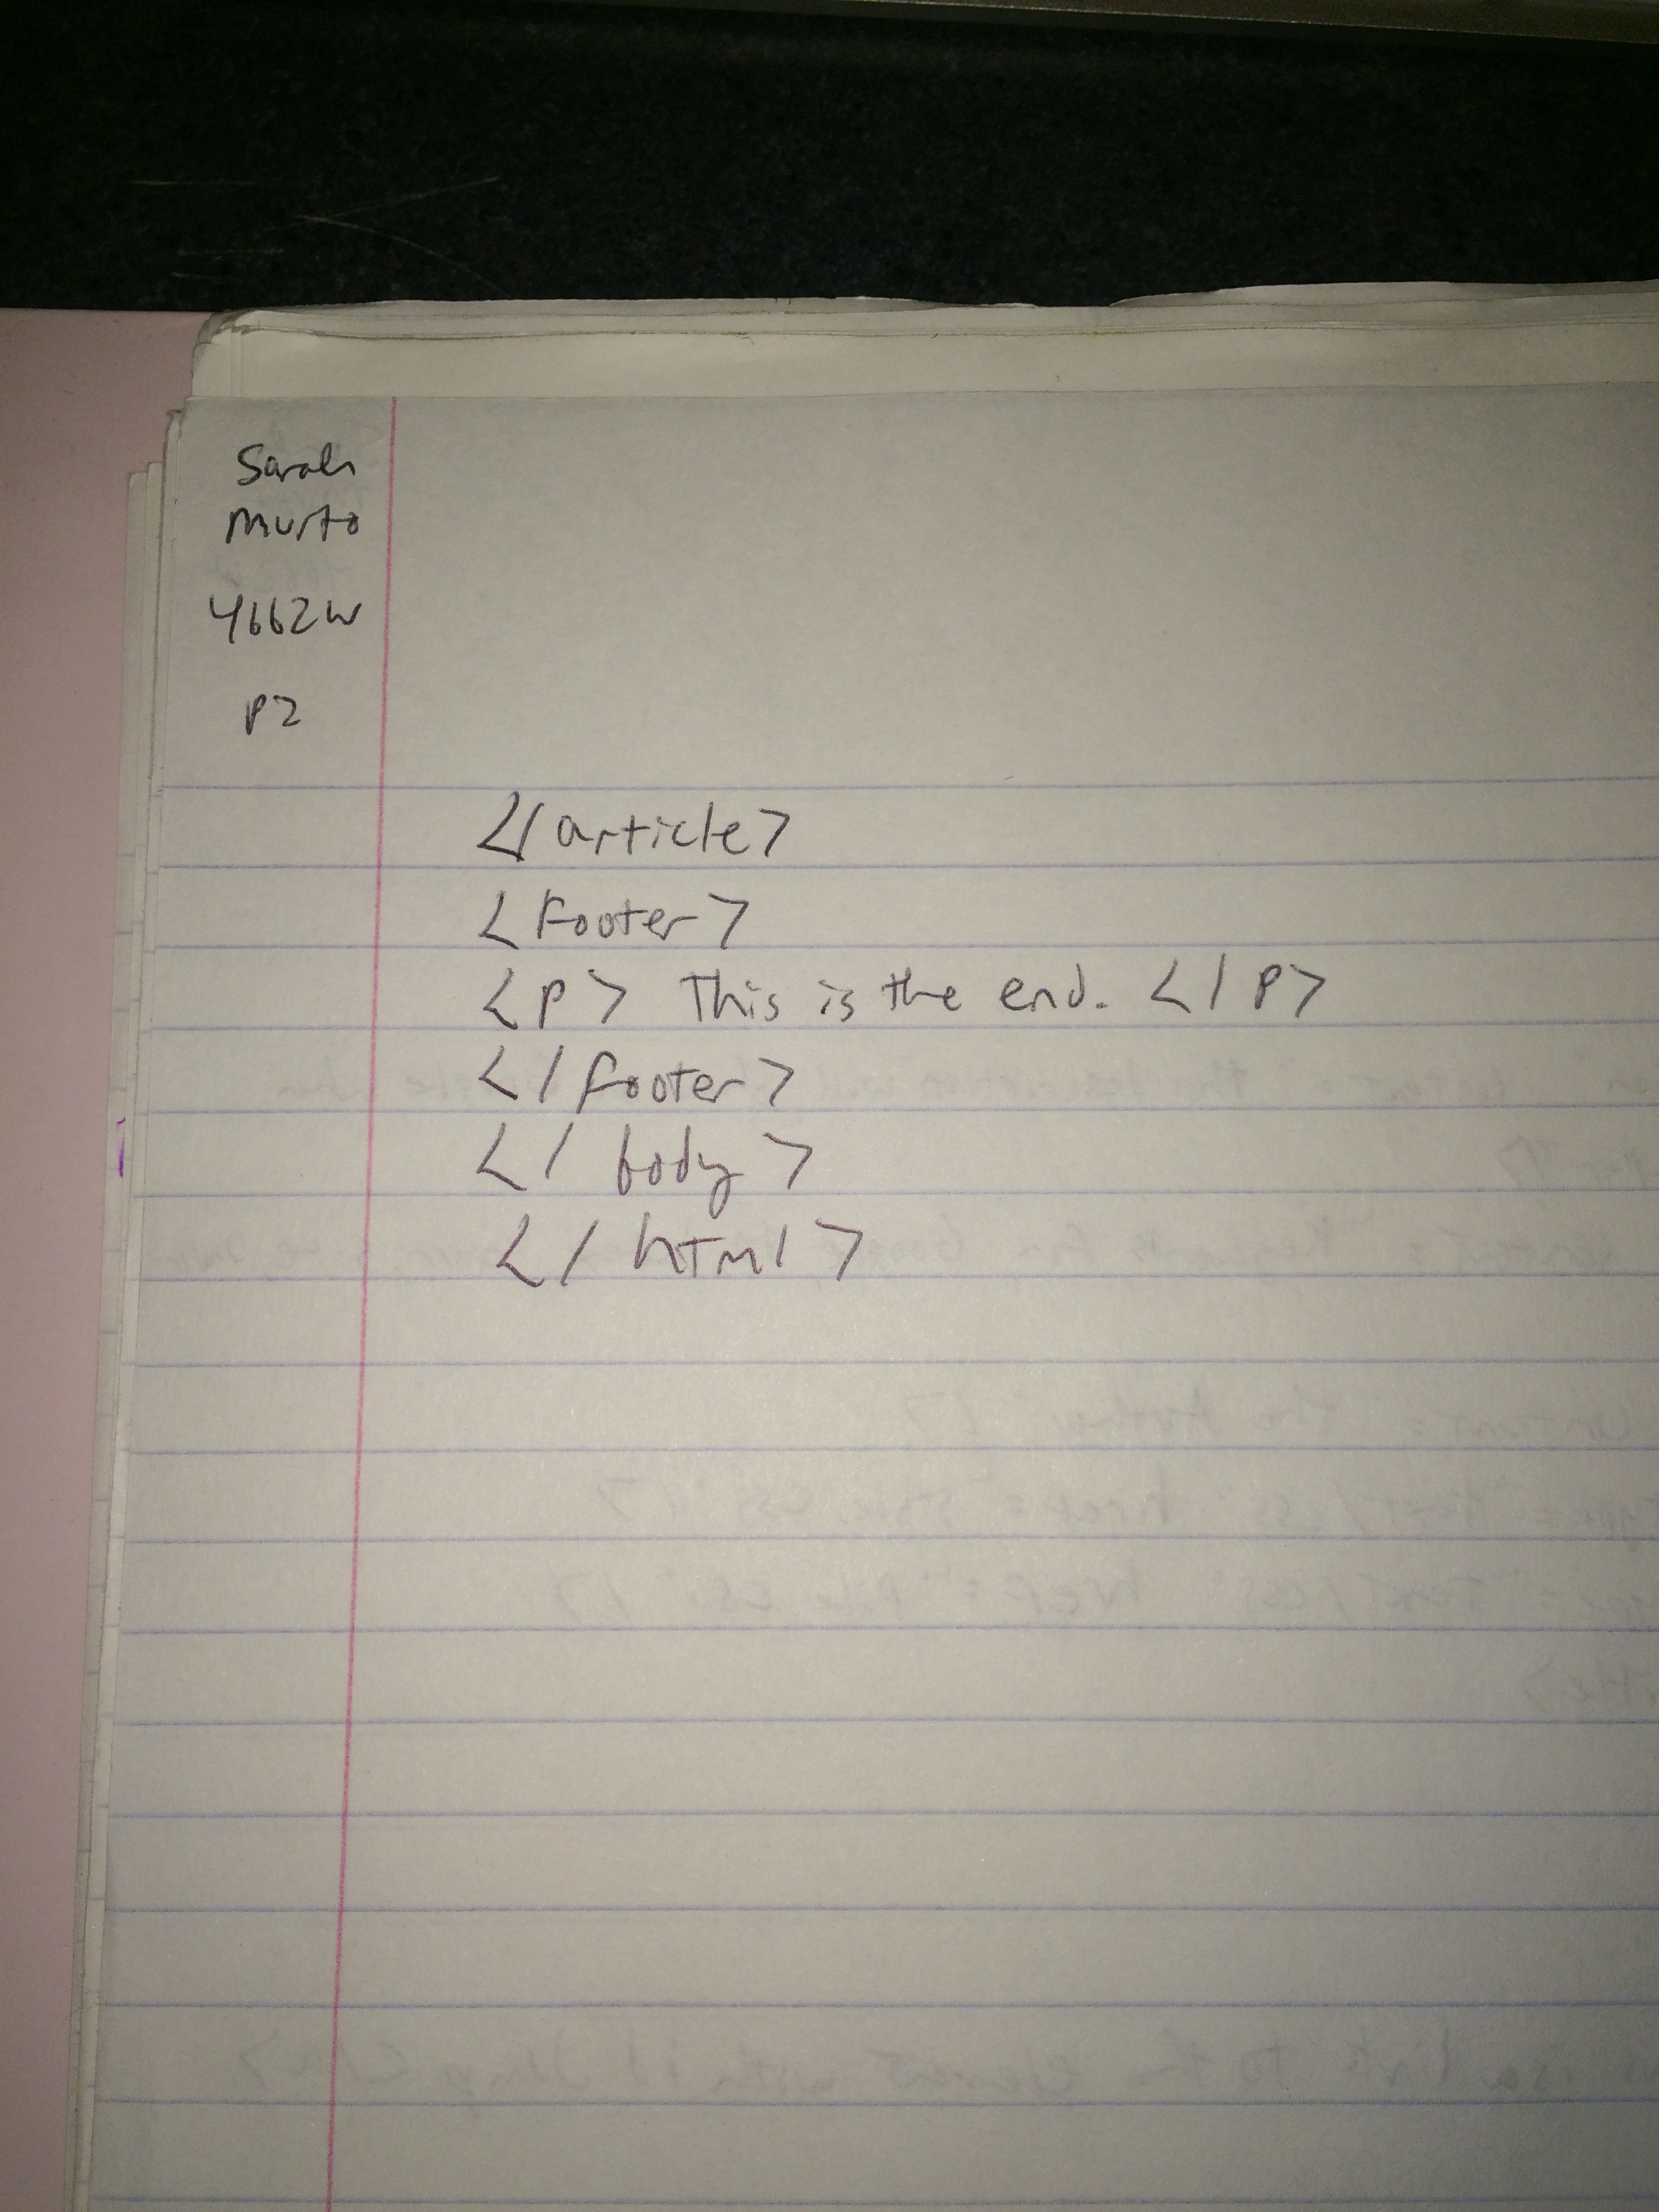 Sarah
Murto
4662W
P2
</article>
<Footer>
<p> This is the end. </p>
</footer>
</body>
</html>